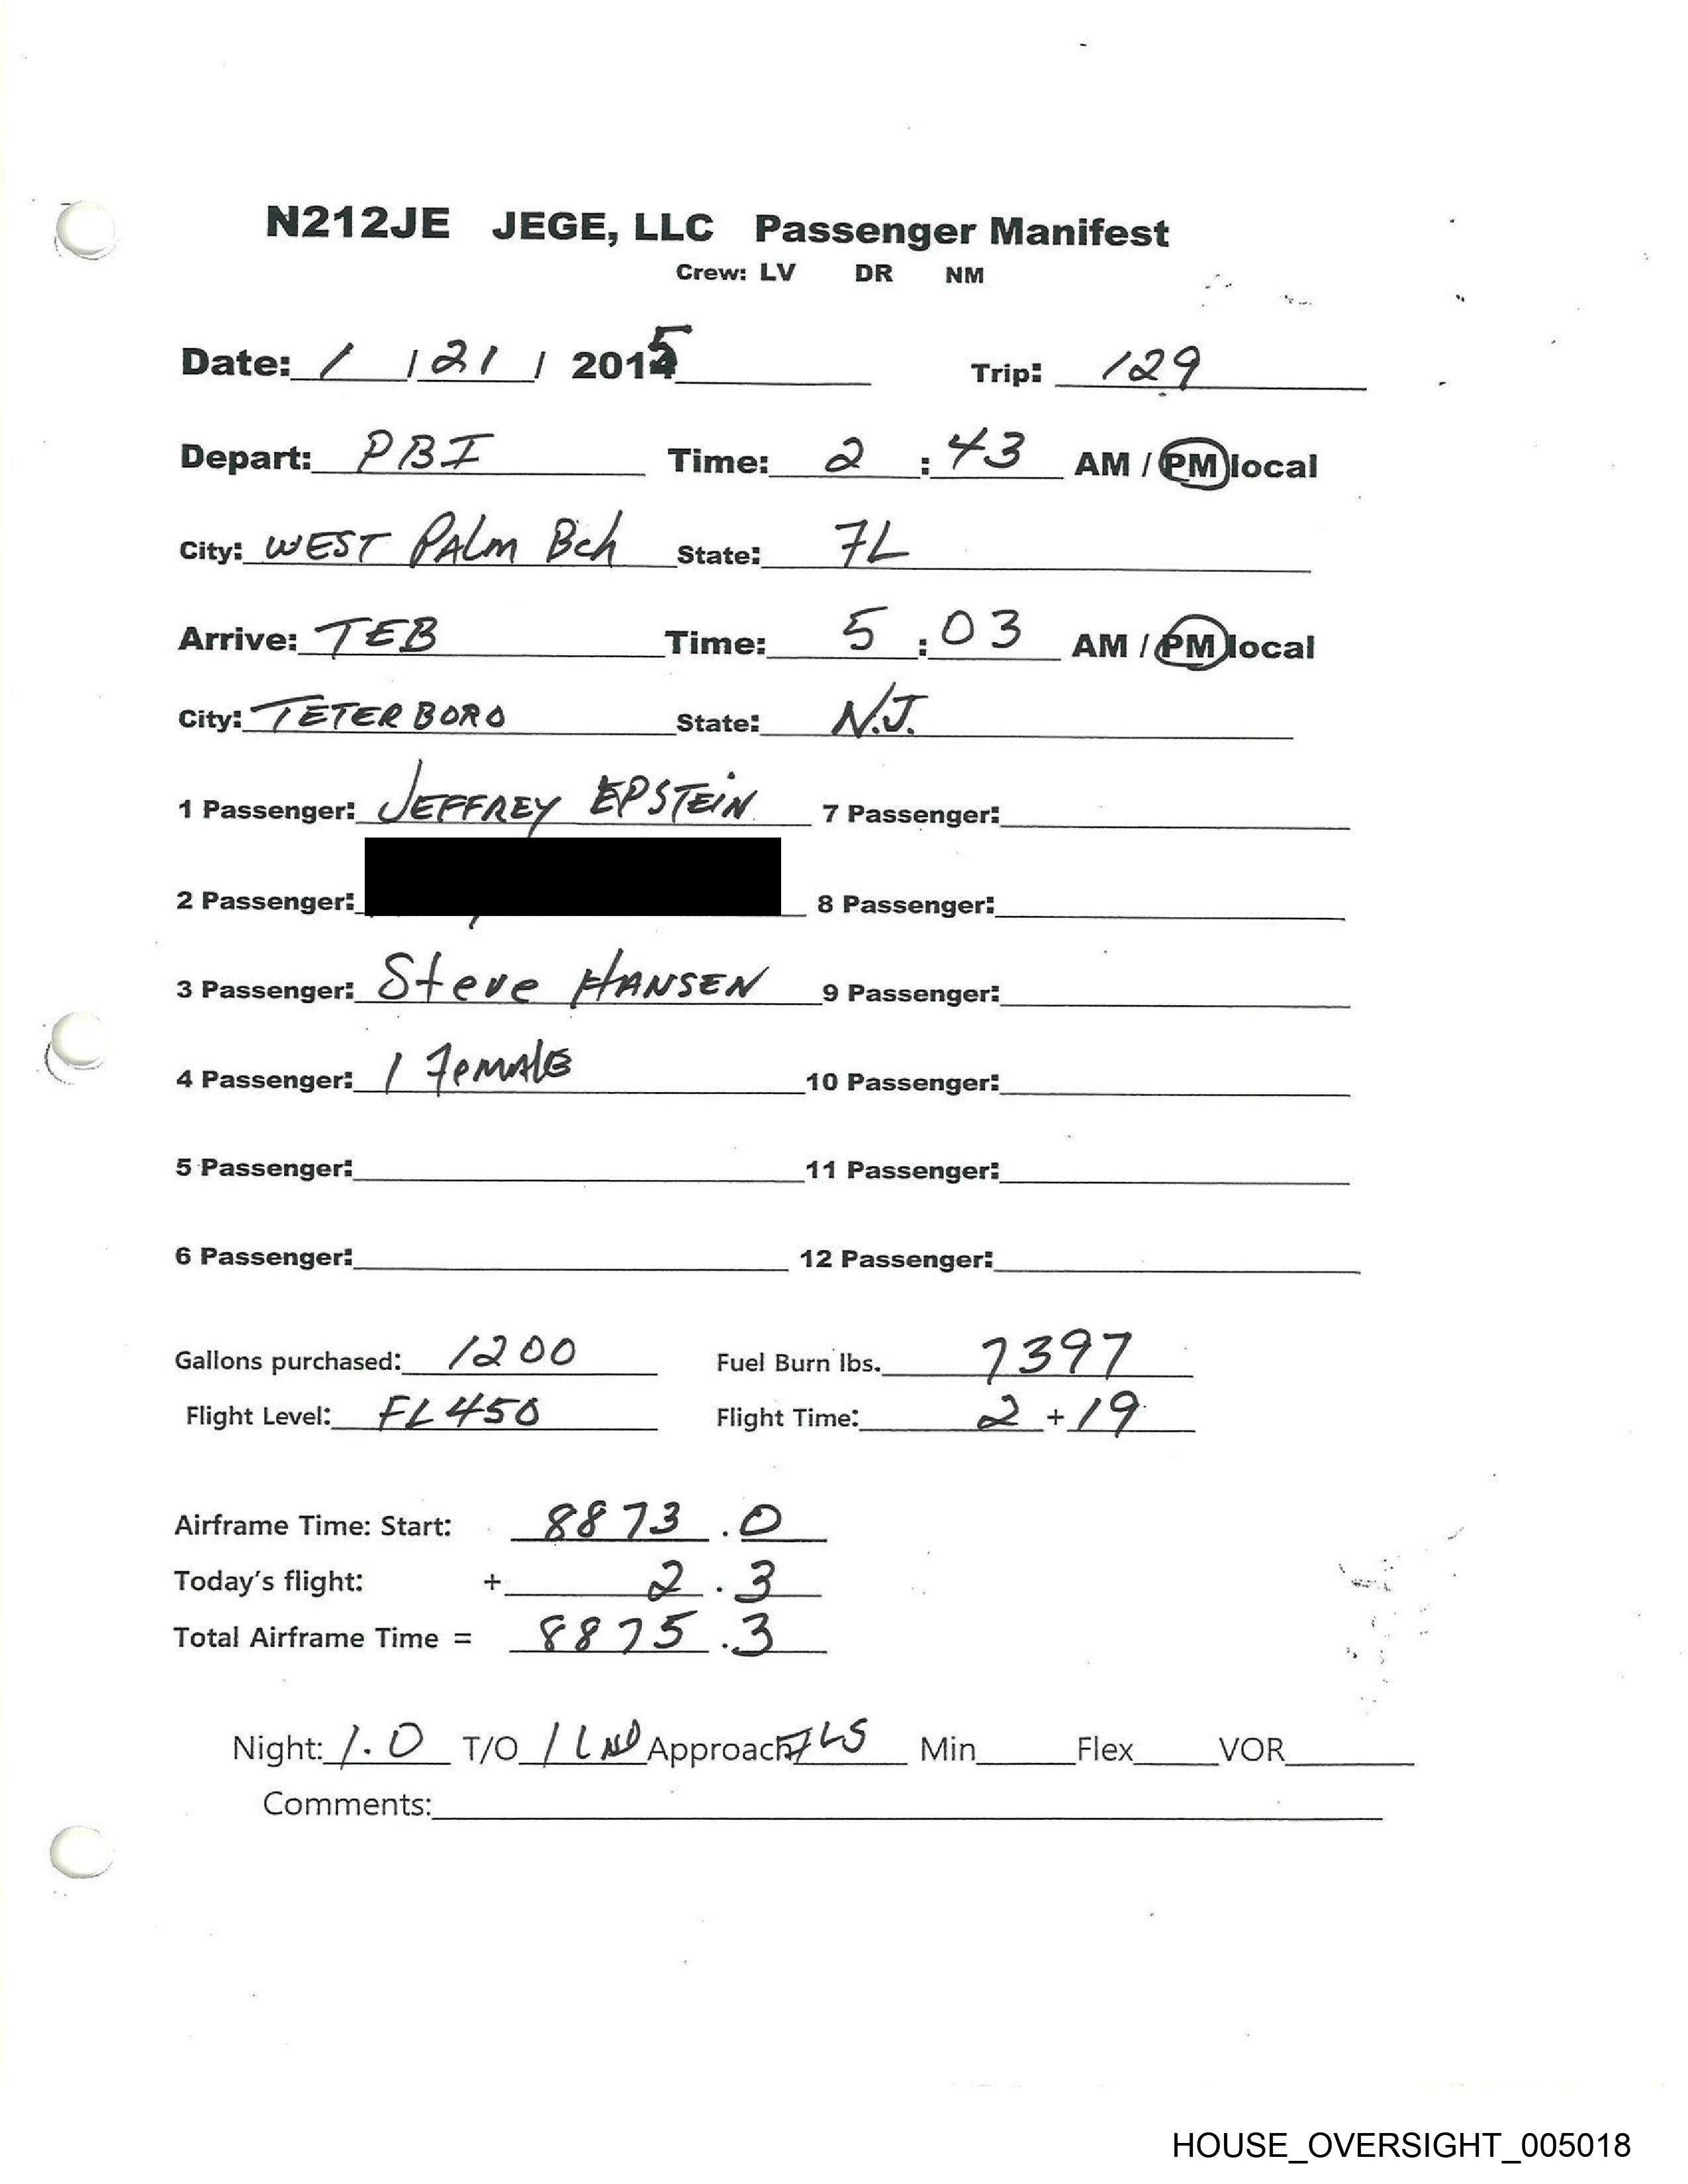 N212JE JEGE, LLC Passenger Manifest
Crew: LV DR NM
Date: 1 / 21 / 2015 Trip: 129
Depart: PBI Time: 2 : 43 AM / PM local
City: WEST PALM Bch State: FL
Arrive: TEB Time: 5 : 03 AM / PM local
City: TETERBORO State: N.J.
1 Passenger: JEFFREY EPSTEIN 7 Passenger:
2 Passenger: 8 Passenger:
3 Passenger: Steve HANSEN 9 Passenger:
4 Passenger: 1 FEMALE 10 Passenger:
5 Passenger: 11 Passenger:
6 Passenger: 12 Passenger:
Gallons purchased: 1200 Fuel Burn lbs. 7397
Flight Level: FL450 Flight Time: 2 + 19
Airframe Time: Start: 8873 . 0
Today's flight: + 2 . 3
Total Airframe Time = 8875 . 3
Night: 1.0 T/O 1 LND Approach ILS Min Flex VOR
Comments:
HOUSE_OVERSIGHT_005018